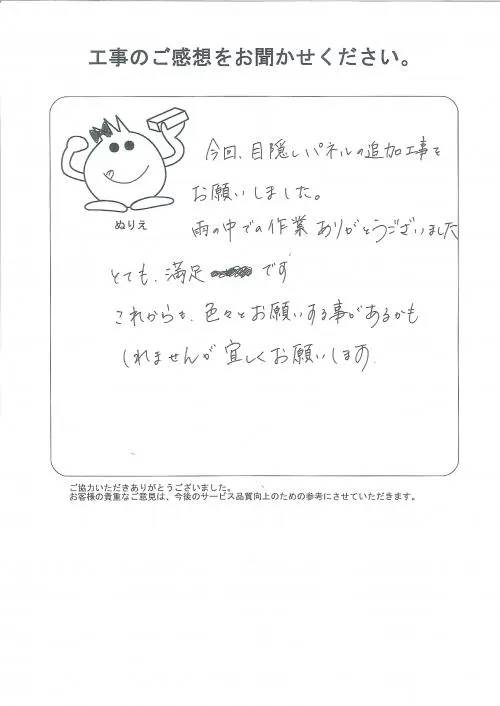 工事のご感想をお聞かせください。
ぬりえ
今回、目隠しパネルの追加工事を
お願いしました。
雨の中での作業 ありがとうございました
とても、満足 です
これからも、色々とお願いする事があるかも
しれませんが 宜しくお願いします.
ご協力いただきありがとうございました。
お客様の貴重なご意見は、今後のサービス品質向上のための参考にさせていただきます。